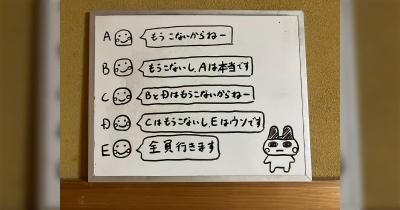 A もうこないからねー
B もうこないし、Aは本当です
C BとDはもうこないからねー
D Cはもうこないし、Eはウソです
E 全員行きます